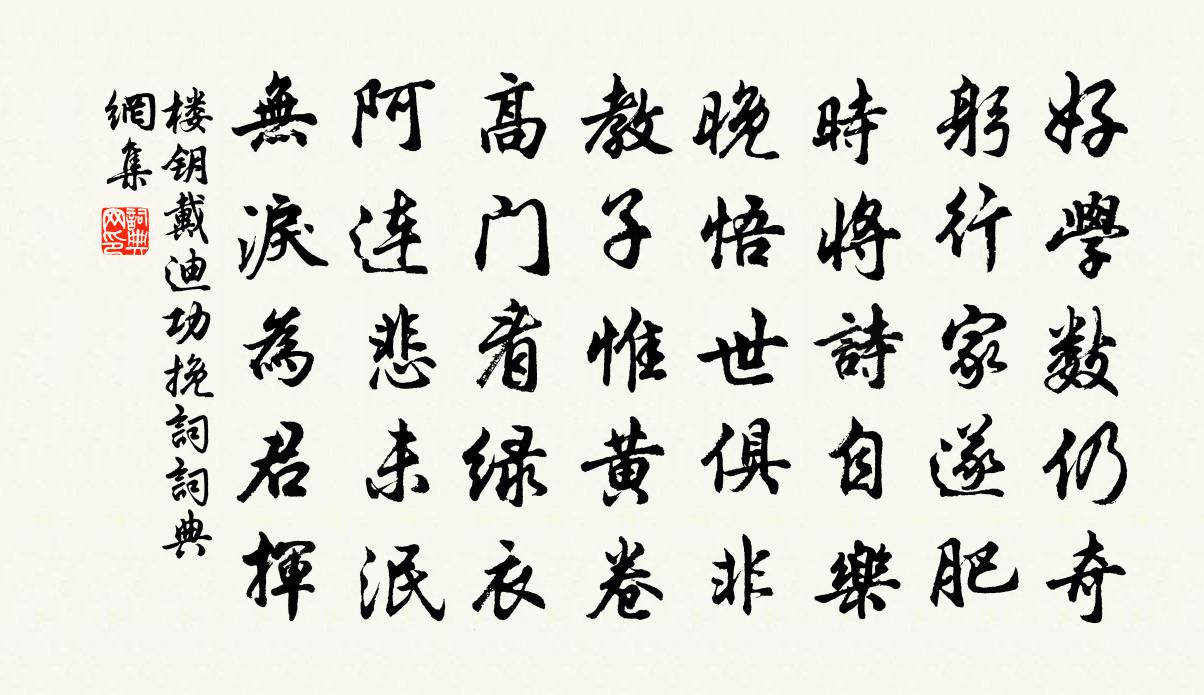 好學數仍奇
躬行家遂肥
時將詩自樂
晚悟世俱非
教子惟黃卷
高门看绿衣
阿连悲未泯
無淚為君揮
楼钥戴迪功挽詞詞典
網集
詞典
网印